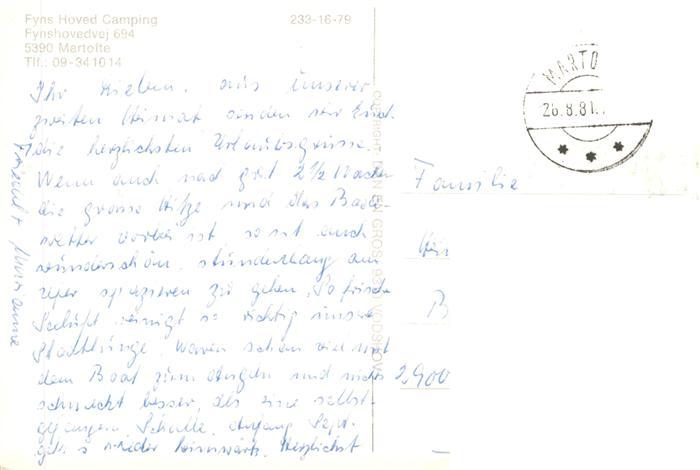 Fyns Hoved Camping
Fynshovedvej 694
5390 Martofte
Tlf.: 09-341014
233-16-79
MARTO
26.8.81.
Ihr Lieben, aus unserer
zweiten Heimat senden wir Euch
die herzlichsten Urlaubsgrüsse.
Wenn auch nach gut 2½ Wochen
die grosse Hitze und das Bade-
wetter vorbei ist, so ist auch
wunderschön, stundenlang am
Ufer spazieren zu gehen. So frische
Seeluft reinigt so richtig unsere
Stadtlunge. Waren schon viel mit
dem Boot zum Angeln und nichts
schmeckt besser, als eine selbst-
gefangene Scholle. Anfang Sept.
geht's wieder heimwärts. Herzlichst
Marianne
Familie
B
2900
COPYRIGHT